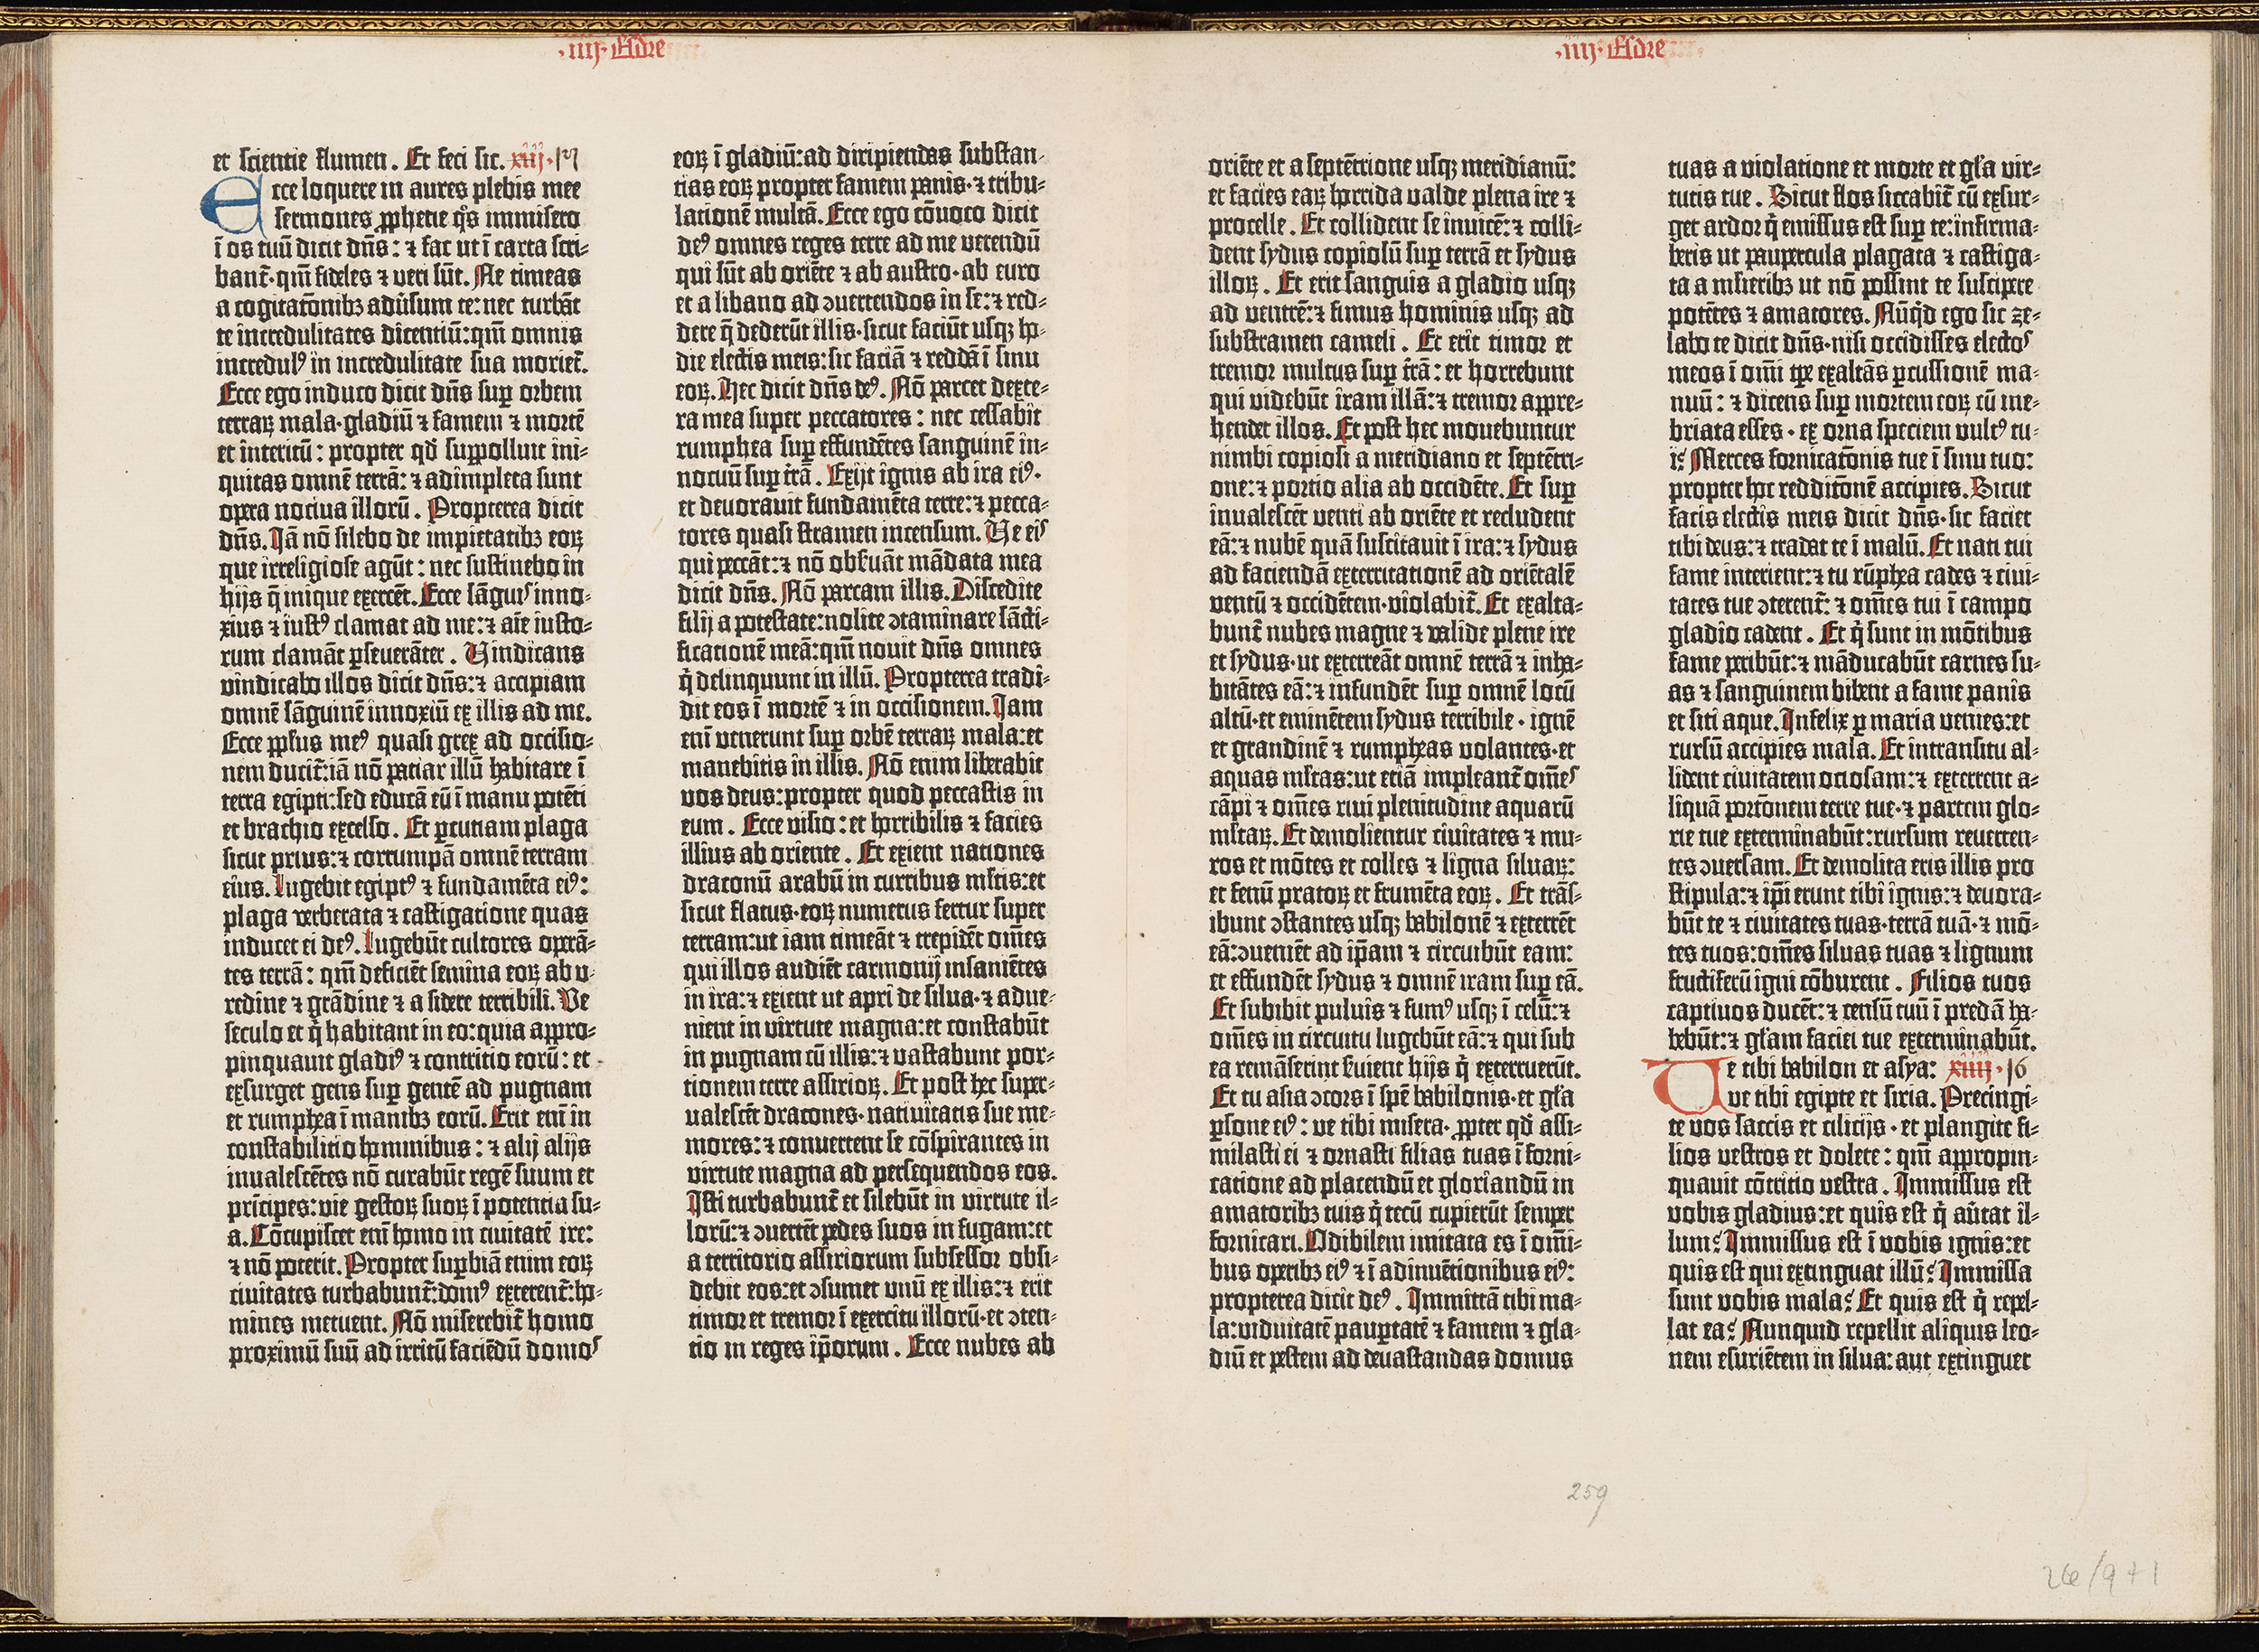 .iiij. Esdre
et scientie flumen. Et feci sic. xiij. 15
Ecce loquere in aures plebis mee
sermones ꝓphetie q̊s immisero
ī os tuū dicit dñs: ⁊ fac ut ī carta scri-
bant᷑·qm̄ fideles ⁊ veri sūt. Ne timeas
a cogitatōnibꝫ adūsum te: nec turbāt
te incredulitates dicentiū: qm̄ omnis
incredulꝰ in incredulitate sua moriet᷑.
Ecce ego induco dicit dñs suꝑ orbem
terraꝝ mala·gladiū ⁊ famem ⁊ mortē
et interitū: propter qd̓ suꝑpolluit ini-
quitas omnē terrā: ⁊ adimpleta sunt
opera nociua illorū. Propterea dicit
dñs. Iā nō silebo de impietatibꝫ eoꝝ
que irreligiose agūt: nec sustinebo in
hijs q̄ inique exercēt. Ecce sāguis inno-
xius ⁊ iustꝰ clamat ad me: ⁊ aīe iusto-
rum clamāt ꝑseuerāter. Vindicans
vindicabo illos dicit dñs: ⁊ accipiam
omnē sāguinē innoxiū ex illis ad me.
Ecce ꝓplus meꝰ quasi grex ad occisio-
nem ducit᷑: iā nō patiar illū habitare ī
terra egipti: sed educā eū ī manu potēti
et brachio excelso. Et ꝑcutiam plaga
sicut prius: ⁊ corrumpā omnē terram
eius. Lugebit egiptꝰ ⁊ fundamēta eiꝰ:
plaga verberata ⁊ castigatione quas
inducet ei deꝰ. Lugebūt cultores operā-
tes terrā: qm̄ deficiēt semina eoꝝ ab u-
redine ⁊ grādine ⁊ a sidere terribili. Ve
seculo et q̇ habitant in eo: quia appro-
pinquauit gladiꝰ ⁊ contritio eorū: et
exsurget gens suꝑ gentē ad pugnam
et rumphea ī manibꝫ eorū. Erit enī in
constabilitio hominibus: ⁊ alij alijs
inualescētes nō curabūt regē suum et
prīcipes: vie gestoꝝ suoꝝ ī potentia su-
a. Cōcupiscet enī homo in ciuitatē ire:
⁊ nō poterit. Propter suꝑbiā enim eoꝝ
ciuitates turbabunt᷑: domꝰ exterent᷑: ho-
mines metuent. Nō miserebit᷑ homo
proximū suū ad irritū faciēdū domos
eoꝝ ī gladiū: ad diripiendas substan-
tias eoꝝ propter famem panis·⁊ tribu-
lationē multā. Ecce ego cōuoco dicit
deꝰ omnes reges terre ad me verendū
qui sūt ab oriēte ⁊ ab austro·ab euro
et a libano ad ↄuertendos in se: ⁊ red-
dere q̄ dederūt illis·sicut faciūt usqꝫ ho-
die electis meis: sic faciā ⁊ reddā ī sinu
eoꝝ. Hec dicit dñs deꝰ. Nō parcet dexte-
ra mea super peccatores: nec cessabit
rumphea suꝑ effundētes sanguinē in-
nocuū suꝑ t̄rā. Exijt ignis ab ira eiꝰ·
et deuorauit fundamēta terre: ⁊ pecca-
tores quasi stramen incensum. Ve eis
qui peccāt: ⁊ nō obẜuāt mādata mea
dicit dñs. Nō parcam illis. Discedite
filij a potestate: nolite ↄtaminare sācti-
ficationē meā: qm̄ nouit dñs omnes
q̇ delinquunt in illū. Propterea tradi-
dit eos ī mortē ⁊ in occisionem. Iam
enī venerunt suꝑ orbē terraꝝ mala: et
manebitis in illis. Nō enim liberabit
vos deus: propter quod peccastis in
eum. Ecce visio: et horribilis ⁊ facies
illius ab oriente. Et exient nationes
draconū arabū in curribus ml̓tis: et
sicut flatus·eoꝝ numerus fertur super
terram: ut iam timeāt ⁊ trepidēt om̄es
qui illos audiēt carmonij insaniētes
in ira: ⁊ exient ut apri de silua·⁊ adue-
nient in virtute magna: et constabūt
in pugnam cū illis: ⁊ vastabunt por-
tionem terre assirioꝝ. Et post hec super-
ualescēt dracones·natiuitatis sue me-
mores: ⁊ conuertent se cōspirantes in
virtute magna ad persequendos eos.
Isti turbabunt᷑ et silebūt in virtute il-
lorū: ⁊ ↄuertēt pedes suos in fugam: et
a territorio assiriorum subsessor obsi-
debit eos: et ↄsumet unū ex illis: ⁊ erit
timor et tremor ī exercitu illorū·et ↄten-
tio in reges ip̄orum. Ecce nubes ab
.iiij. Esdre
oriēte et a septētrione usqꝫ meridianū:
et facies eaꝝ horrida valde plena ire ⁊
procelle. Et collident se inuicē: ⁊ colli-
dent sydus copiosū suꝑ terrā et sydus
illoꝝ. Et erit sanguis a gladio usqꝫ
ad ventrē: ⁊ fimus hominis usqꝫ ad
substramen cameli. Et erit timor et
tremor multus suꝑ t̄rā: et horrebunt
qui videbūt iram illā: ⁊ tremor appre-
hendet illos. Et post hec mouebuntur
nimbi copiosi a meridiano et septētri-
one: ⁊ portio alia ab occidēte. Et suꝑ
inualescēt venti ab oriēte et recludent
eā: ⁊ nubē quā suscitauit ī ira: ⁊ sydus
ad faciendā exterritationē ad oriētalē
ventū ⁊ occidētem·violabit᷑. Et exalta-
bunt᷑ nubes magne ⁊ valide plene ire
et sydus·ut exterreāt omnē terrā ⁊ inha-
bitātes eā: ⁊ infundēt suꝑ omnē locū
altū·et eminētem sydus terribile·ignē
et grandinē ⁊ rumpheas volantes·et
aquas ml̓tas: ut etiā impleant᷑ om̄es
cāpi ⁊ om̄es riui plenitudine aquarū
ml̓taꝝ. Et demolientur ciuitates ⁊ mu-
ros et mōtes et colles ⁊ ligna siluaꝝ:
et fenū pratoꝝ et frumēta eoꝝ. Et trās-
ibunt ↄstantes usqꝫ babilonē ⁊ exterrēt
eā: ↄueniēt ad ip̄am ⁊ circuibūt eam:
et effundēt sydus ⁊ omnē iram suꝑ eā.
Et subibit puluis ⁊ fumꝰ usqꝫ ī celū: ⁊
om̄es in circuitu lugebūt eā: ⁊ qui sub
ea remāserint ẜuient hijs q̇ exterruerūt.
Et tu asia ↄcors ī spē babilonis·et gl̓a
ꝑsone eiꝰ: ve tibi misera·ꝓpter qd̓ assi-
milasti ei ⁊ ornasti filias tuas ī forni-
catione ad placendū et gloriandū in
amatoribꝫ tuis q̇ tecū cupierūt semper
fornicari. Odibilem imitata es ī om̄i-
bus operibꝫ eiꝰ ⁊ ī adinuētionibus eiꝰ:
propterea dicit deꝰ. Immittā tibi ma-
la: viduitatē pauꝑtatē ⁊ famem ⁊ gla-
diū et pestem ad deuastandas domus
tuas a violatione et morte et gl̓a vir-
tutis tue. Sicut flos siccabit᷑ cū exsur-
get ardor q̇ emissus est suꝑ te: infirma-
beris ut paupercula plagata ⁊ castiga-
ta a ml̓ieribꝫ ut nō possint te suscipere
potētes ⁊ amatores. Nūqd̓ ego sic ze-
labo te dicit dñs·nisi occidisses electos
meos ī om̄i tꝑe exaltās ꝑcussionē ma-
nuū: ⁊ dicens suꝑ mortem eoꝝ cū ine-
briata esses·ex orna speciem vultꝰ tu-
i? Merces fornicatōnis tue ī sinu tuo:
propter hoc redditōnē accipies. Sicut
facis electis meis dicit dñs·sic faciet
tibi deus: ⁊ tradet te ī malū. Et nati tui
fame interient: ⁊ tu rūphea cades ⁊ ciui-
tates tue ↄterent᷑: ⁊ om̄es tui ī campo
gladio cadent. Et q̇ sunt in mōtibus
fame peribūt: ⁊ māducabūt carnes su-
as ⁊ sanguinem bibent a fame panis
et siti aque. Infelix ꝑ maria venies: et
rursū accipies mala. Et in transitu al-
lident ciuitatem ociosam: ⁊ exterrent a-
liquā portōnem terre tue·⁊ partem glo-
rie tue exterminabūt: rursum reuerten-
tes ↄuersam. Et demolita eris illis pro
stipula: ⁊ ip̄i erunt tibi ignis: ⁊ deuora-
būt te ⁊ ciuitates tuas·terrā tuā·⁊ mō-
tes tuos: om̄es siluas tuas ⁊ lignum
fructiferū igni cōburent. Filios tuos
captiuos ducēt: ⁊ censū tuū ī predā ha-
bebūt: ⁊ gl̓am faciei tue exterminabūt.
Ve tibi babilon et asya: xiiij. 16
ve tibi egipte et siria. Precingi-
te vos saccis et cilicijs·et plangite fi-
lios vestros et dolete: qm̄ appropin-
quauit cōtritio vestra. Immissus est
vobis gladius: et quis est q̇ aūtat il-
lum? Immissus est ī vobis ignis: et
quis est qui extinguat illū? Immissa
sunt vobis mala? Et quis est q̇ repel-
lat ea? Nunquid repellit aliquis leo-
nem esuriētem in silua: aut extinguet
259